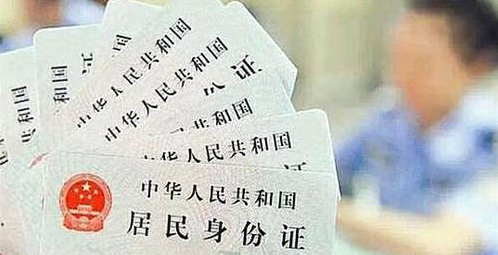 中华人民共和国
中华人民共和国
证
民共和国
人民共和国
中华人民共和国
居民身份证